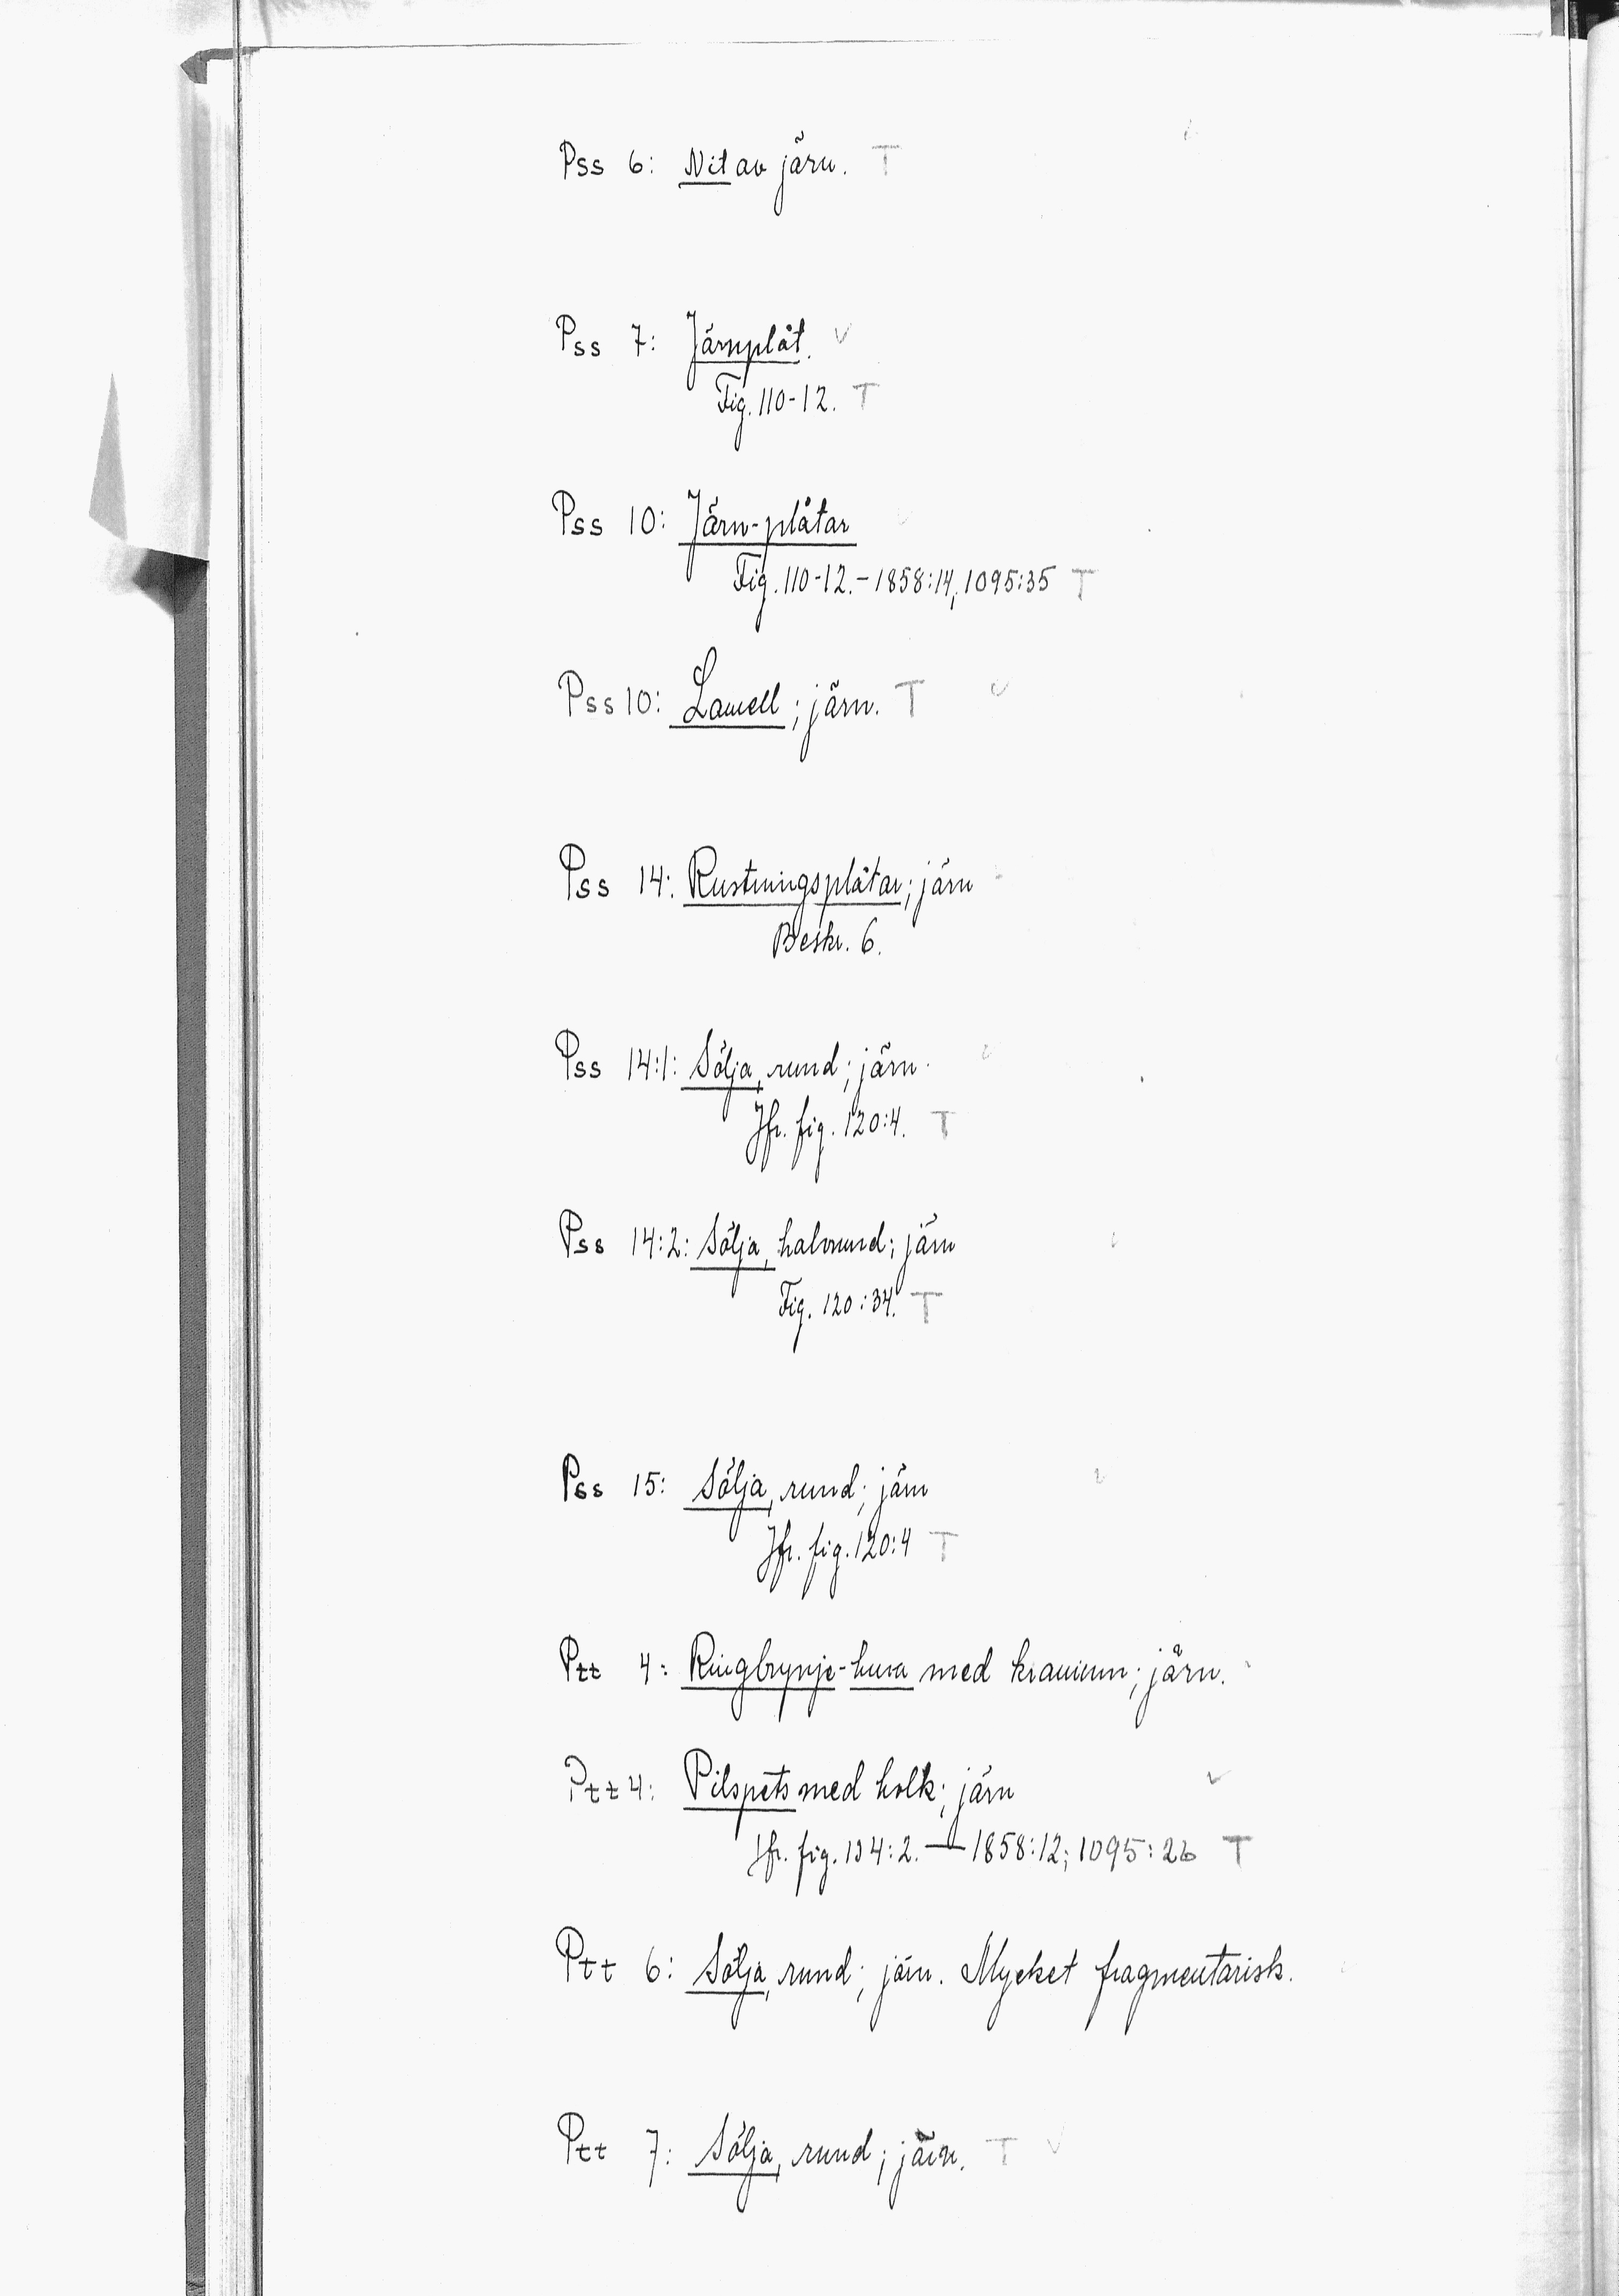 Pss 6: Nit av järn. T
Pss 7: Järnplåt. ✓
Fig. 110-12. T
Pss 10: Järn-plåtar
Fig. 110-12. – 1858:14, 1095:35 T
Pss 10: Lamell; järn. T
Pss 14: Rustningsplåtar; järn
Beskr. 6.
Pss 14:1: Sölja, rund; järn.
Jfr. fig. 120:4. T
Pss 14:2: Sölja, halvrund; järn
Fig. 120:34. T
Pss 15: Sölja, rund; järn
Jfr. fig. 120:4 T
Ptt 4: Ringbrynje-huva med kranium; järn.
Ptt 4: Pilspets med holk; järn ✓
Jfr. fig. 134:2. — 1858:12; 1095:26 T
Ptt 6: Sölja, rund; järn. Mycket fragmentarisk.
Ptt 7: Sölja, rund; järn. T ✓